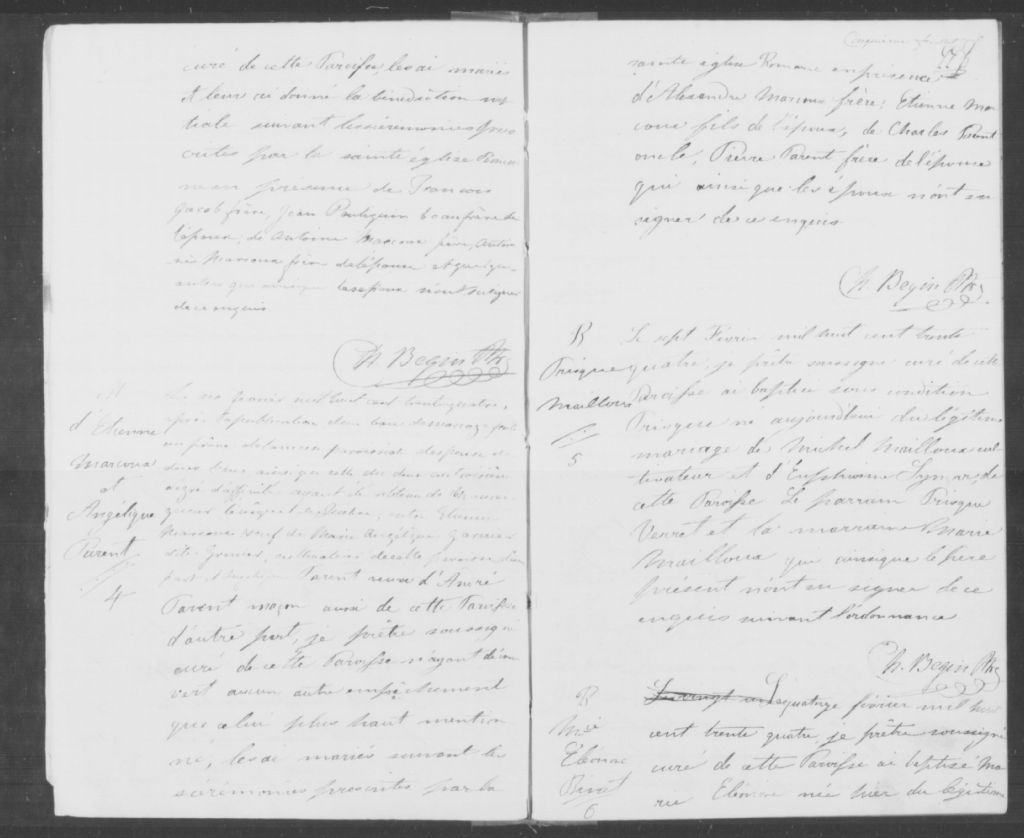 curé de cette Paroisse, les ai mariés
et leur ai donné la bénédiction nup
tiale suivant les cérémonies pres
crites par la sainte église Romai
ne en présence de François
Jacob frère, Jean Poliquin beaufrère de
l'époux, de Antoine Marcoux père, Antoi
ne Marcoux frère de l'épouse et quelques
autres que ainsi que les époux n'ont su signer
de ce enquis
Ch. Begin Ptre
M
d'Etienne
Marcoux
et
Angélique
Parent
4
mil huit cent trente quatre,
après la publication d'un ban de mariage faite
au prône de la messe paroissiale dispense de
deux bans ainsi que celle du
degré d'affinité ayant été obtenue de
de Québec, entre Etienne
Marcoux veuf de Marie Angélique Garnier
dite Grenier, cultivateur de cette paroisse d'une
part, et Angélique Parent veuve d'André
Parent maçon aussi de cette Paroisse
d'autre part, je prêtre soussigné
curé de cette Paroisse n'ayant décou
vert aucun autre empêchement
que celui plus haut mention
né, les ai mariés suivant les
cérémonies prescrites par la
sainte église Romaine en présence
d'Alexandre Marcoux frère, Etienne Mar
coux fils de l'époux, de Charles Parent
oncle, Pierre Parent frère de l'épouse
qui ainsi que les époux n'ont su
signer de ce enquis
Ch. Begin Ptre
B
Prisque
Mailloux
5
Le sept Février mil huit cent trente
quatre, je prêtre soussigné curé de cette
Paroisse ai baptisé sous condition
Prisque né aujourd'hui du légitime
mariage de Michel Mailloux cul
tivateur et d'Euphrosine de
cette Paroisse Le parrain Prisque
Verret et la marraine Marie
Mailloux qui ainsi que le père
présent n'ont su signer de ce
enquis suivant l'ordonnance
Ch. Begin Ptre
B
Mie
Éléonore
6
Le quatorze février mil huit
cent trente quatre je prêtre soussigné
curé de cette Paroisse ai baptisé Ma
rie Eléonore née hier du légitime